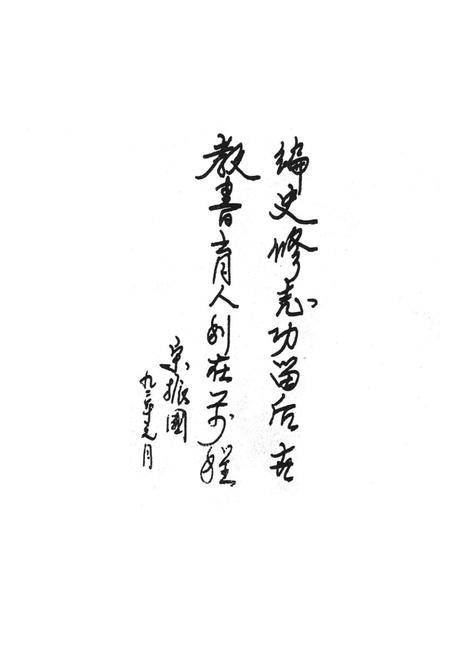 编史修志功留后世
教書育人利在前程
宋振國
九三年元月